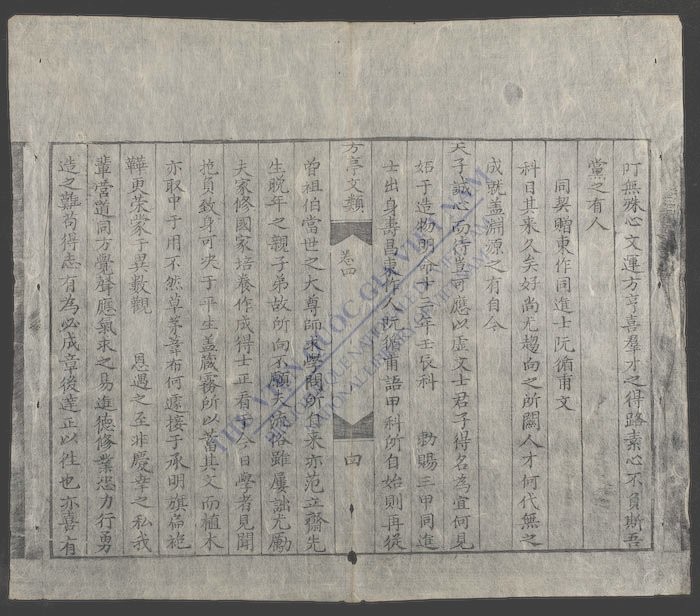 阿無殊心文運方亨喜羣才之得路素心不負斯吾
黨之有人
同契贈東作同進士阮循甫文
科目其来久矣好尚尤趨向之所關人才何代無之
成就盖淵源之有自今
天子誠心而待豈可應以虚文士君子得名為宜何見
妬于造物明命十三年壬辰科 勅賜三甲同進
士出身壽昌東作人阮循甫語甲科所自始則再従
方亭文類 卷四 四
曽祖伯當世之大尊師求學問所自来亦范立齋先
生晚年之親子弟故所向不願夫流俗雖屢詘尤勵
夫家修國家培養作成得士正看于今日學者見聞
抱負致身可决于平生盖蔵霧所以蓄其文而植木
亦取中于用不然草茅韋布何遽接于承明旗扁袍
鞾更荣蒙于異數觀 恩遇之至非慶幸之私我
輩營道同方覺聲應氣求之易進德修業恐力行勇
造之難苟得志有為必成章後達正以性也亦喜有
THƯ VIỆN QUỐC GIA VIỆT NAM
BIBLIOTHÈQUE NATIONALE DU VIETNAM
NATIONAL LIBRARY OF VIETNAM